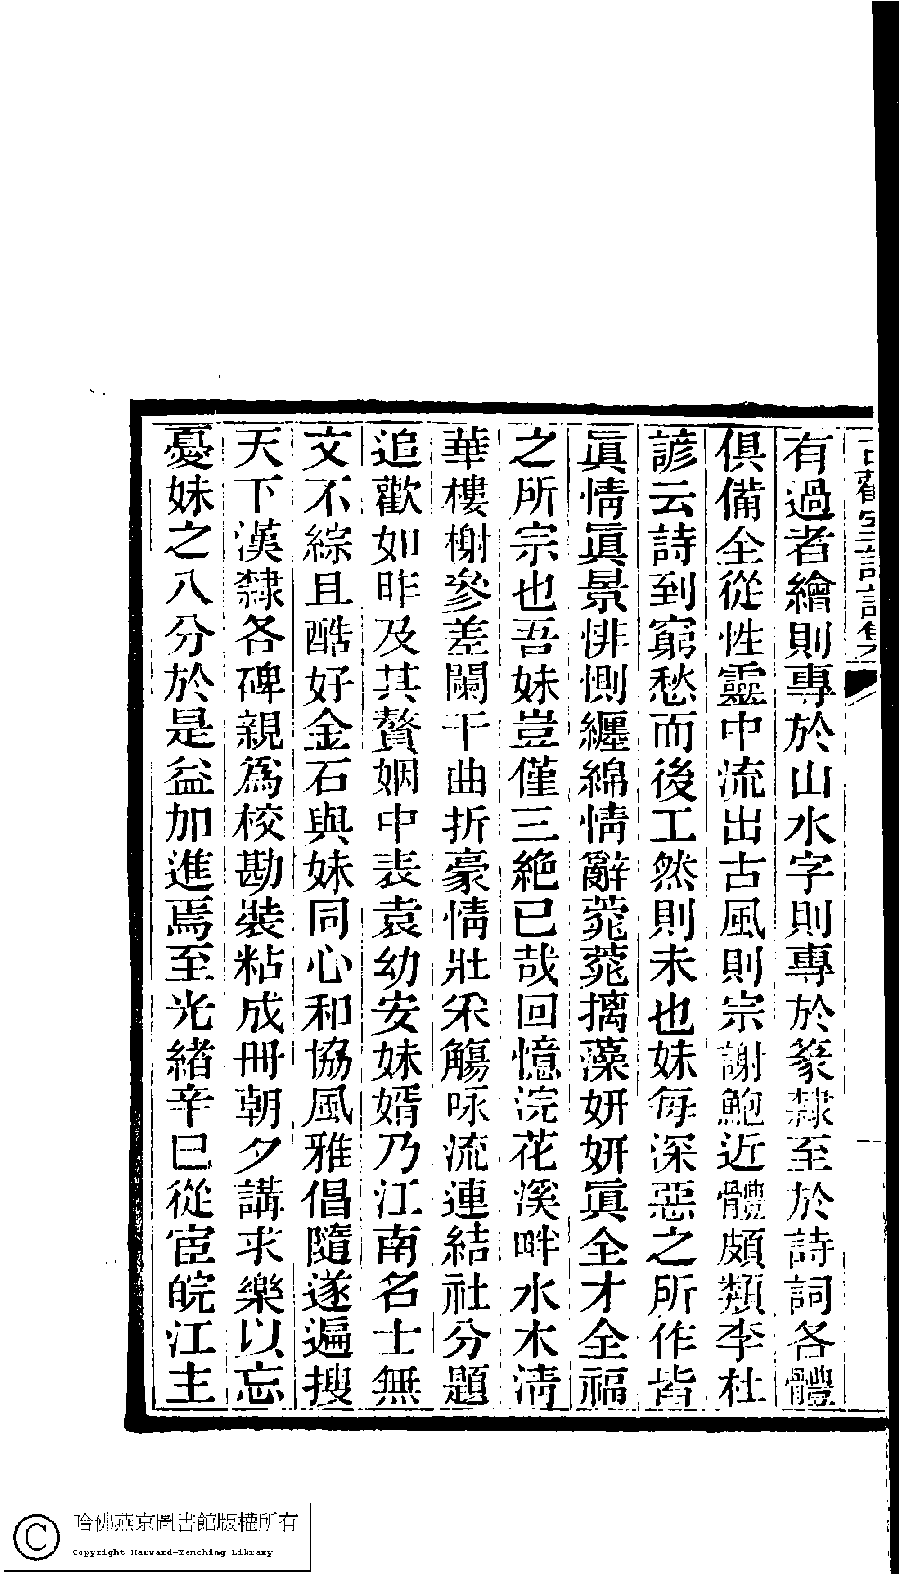 有過者繪則專於山水字則專於篆隸至於詩詞各體
俱備全從性靈中流出古風則宗謝鮑近體頗類李杜
諺云詩到窮愁而後工然則未也妹每深惡之所作皆
眞情眞景悱惻纏綿情辭菀菀摛藻妍妍眞全才全福
之所宗也吾妹豈僅三絶已哉回憶浣花溪畔水木淸
華樓榭參差闌干曲折豪情壯采觴咏流連結社分題
追歡如昨及其贅姻中表袁幼安妹婿乃江南名士無
文不綜且酷好金石與妹同心和協風雅倡隨遂遍搜
天下漢隸各碑親爲校勘裝粘成冊朝夕講求樂以忘
憂妹之八分於是益加進焉至光緖辛巳從宦皖江主
哈佛燕京圖書館版權所有
Copyright Harvard-Yenching Library